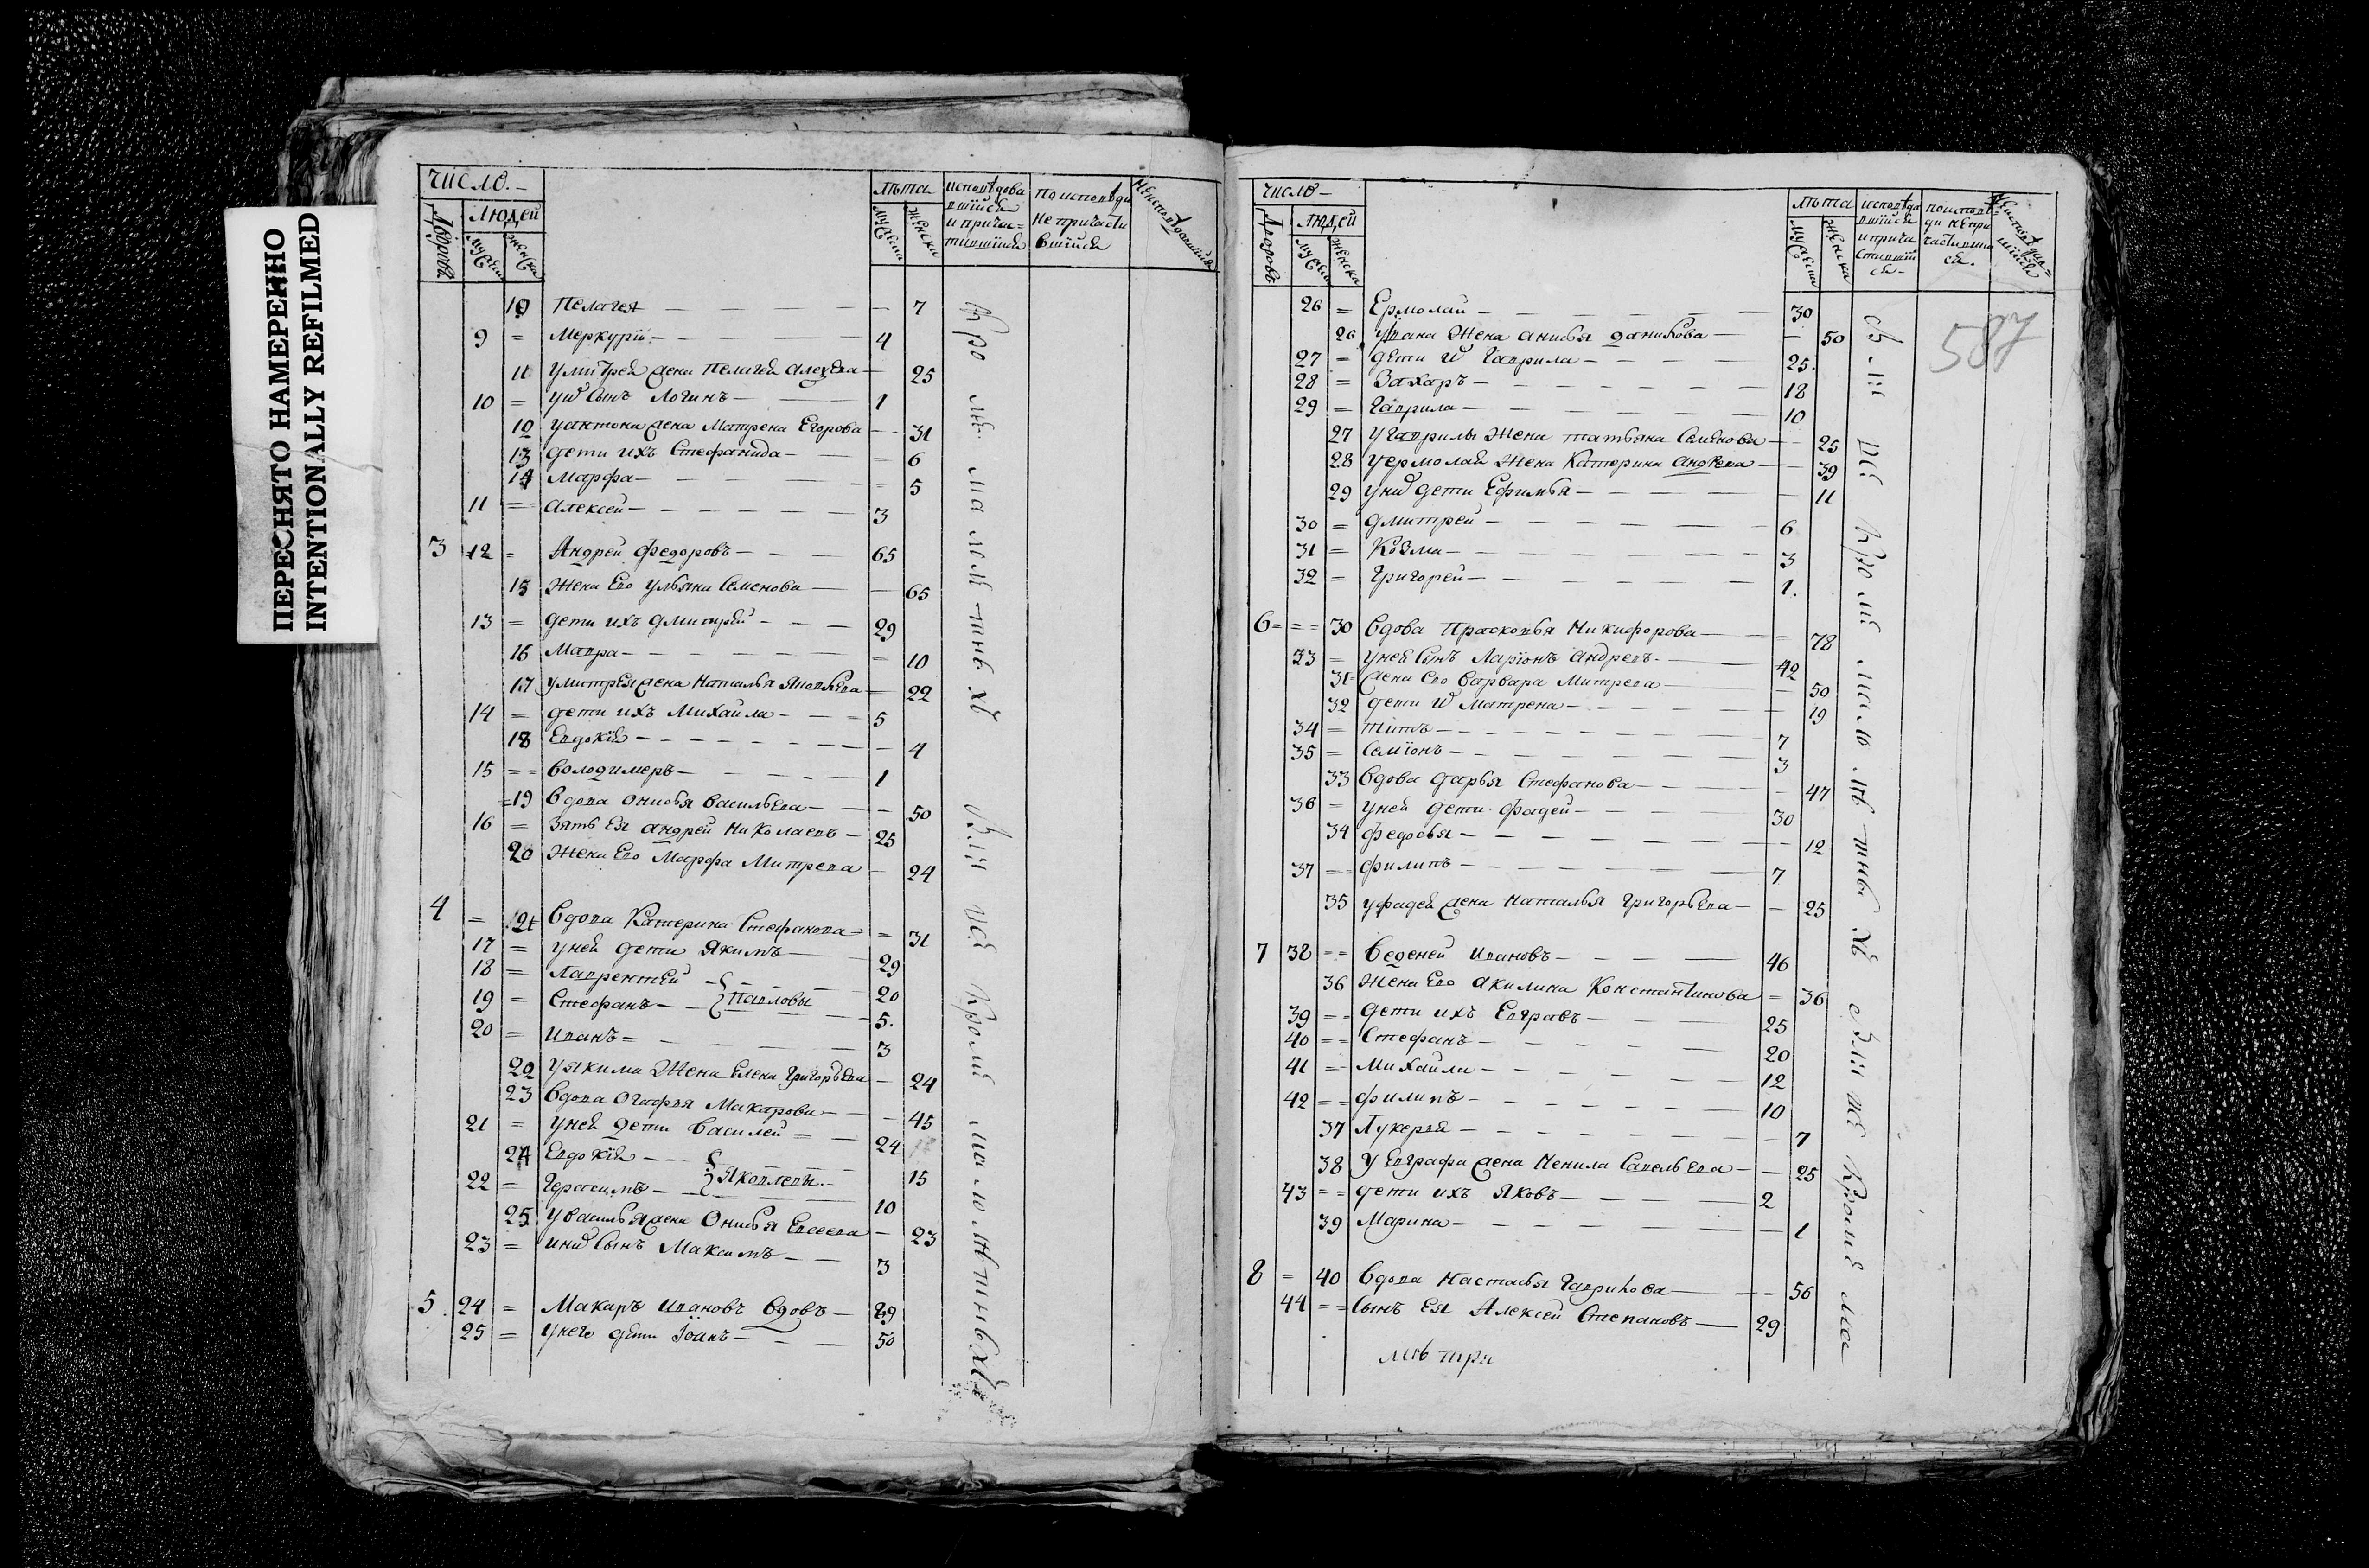 ПЕРЕСНЯТО НАМЕРЕННО
INTENTIONALLY REFILMED
число.
лѣта
исповѣдавшїися и причастившїися
по исповѣди не причастившїися
Дворовъ
Людей
мужеска
женска
мужеска
женска
10 Пелагея 7
9 = Меркурїи 4
11 у митрея жена Пелагея алеѯева 25
10 = у нихъ сынъ Логинъ 1
12 у антона жена Матрена Егорова 31
13 дети ихъ Стефанида 6
14 Марфа 5
11 = алексеи 3
3 12 = Андреи Федоровъ 65
15 жена Ево Ульяна Семенова 65
13 = дети ихъ дмитреи 29
16 Мавра 10
17 у митрея жена Наталья Яковлева 22
14 = дети ихъ Михаила 5
18 Евдокїя 4
15 = = володимеръ 1
= 19 вдова онисья васильева 50
16 = зять Ея андреи Николаевъ 25
20 жена Ево Марфа Митрева 24
4 = 21 вдова Катерина Стефанова 31
17 = у ней дети Якимъ 29
18 = Лаврентеи 20
19 = Стефанъ Павловы 5.
20 = иванъ 3
22 у якима жена Елена Григорьева 24
23 вдова Огафья Макарова 45
21 = у ней дети василеи 24
24 Евдокїя 15
22 = Герасимъ Яковлевы. 10
25 у василья жена Онисья Евсеева 23
23 = у нихъ сынъ Максимъ 3
5. 24 = Макаръ ивановъ вдовъ 89
25 = у него дети Їванъ 50
кроме малолѣтныхъ
сїи все кроме малолѣтныхъ
число
лѣта
исповѣдавшїися и причастившїися
по исповѣди не причастившїися.
Дворовъ
людей
мужеска
женска
мужеска
женска
587
26 = Ермолаи 30
26 у ивана жена анисья данилова 50
27 = дети их Гаврила 25.
28 = Захаръ 18
29 = Гаврила 10
27 у Гаврилы жена татьяна Семенова 25
28 у ермолая жена Катерина андреева 39
29 у них дети Ефимья 11
30 = дмитреи 6
31 = Козма 3
32 = Григореи 1.
6 = = = 30 вдова Прасковья Никифорова 78
33 = у ней сынъ Ларїонъ андревъ. 42
31 = жена ево варвара Митрева 50
32 дети их Матрена 19
34 = титъ 7
35 = Семїонъ 3
33 вдова дарья Стефанова 47
36 = у ней дети фадеи 30
34 федосья 12
37 = = филипъ 7
35 у фадея жена наталья григорьева 25
7 38 = = веденеи ивановъ 46
36 жена Ево акилина Константинова 36
39 = = дети ихъ Евгравъ 25
40 = = Стефанъ 20
41 = = Михаила 12
42 = = филипъ 10
37 Лукерья 7
38 у Евграфа жена Ненила Савельева 25
43 = = дети ихъ Яковъ 2
39 Марина 1
8 = 40 вдова Настасья Гаврилова 56
44 = = сынъ ея Алексеи Степановъ 29
сїи все кроме малолѣтныхъ
сїи все кроме ма